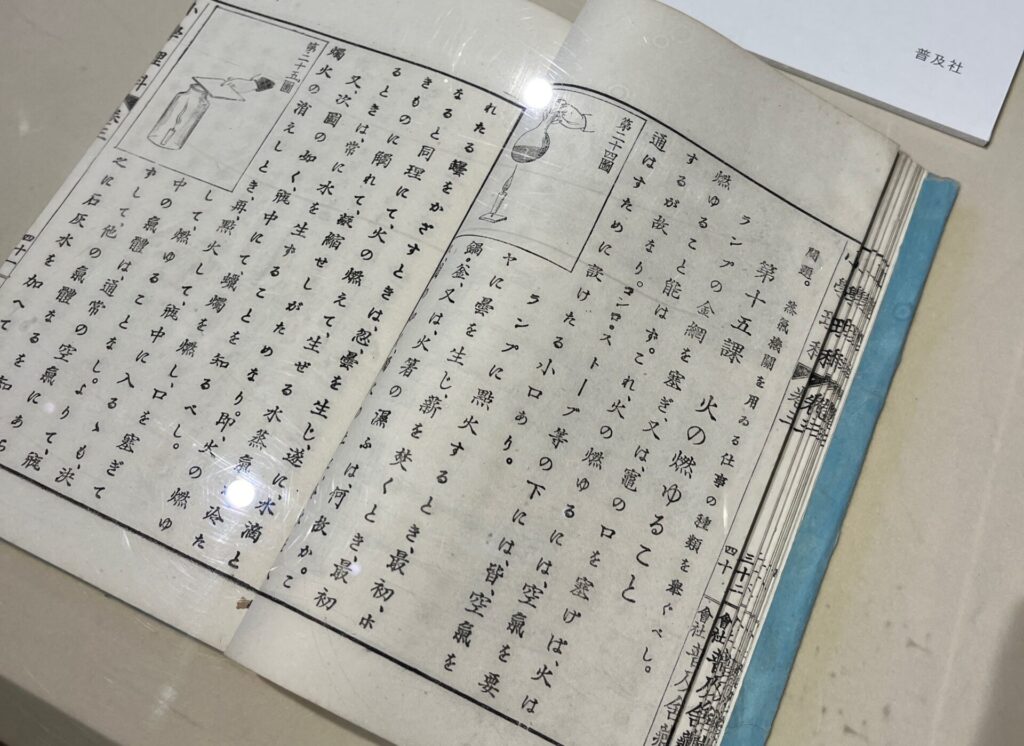 普及社
問題。 蒸氣機關を用ゐる仕事の種類を擧ぐべし。
第十五課 火の燃ゆること
ランプの金網を塞ぎ、又は、竈の口を塞げば、火は
燃ゆること能はず。これ、火の燃ゆるには、空氣を要
するが故なり。コンロ。ストーブ等の下には、皆、空氣を
通はすために設けたる小口あり。
第二十四圖
ランプに點火するとき、最初、ホ
ヤに曇を生じ、薪を焚くとき、最初
鍋。釜、又は、火箸の濕ふは何故か。こ
れたる罎をかざすときは、忽曇を生じ、遂に、水滴と
なると同理にて、火の燃えて、生ぜる水蒸氣 冷た
きものに觸れて、凝縮せしがためなり。即、火の燃ゆ
るときは、常に水を生ずることを知るべし。
又次圖の如く、瓶中にて、蠟燭を燃し、口を塞ぎて
燭火の消えしとき、再點火して、瓶中に入るゝも、決
第二十五圖
して燃ゆることなし。よりて、瓶
中の氣體は、通常の空氣にあら
ずして、他の氣體なるを知
之に石灰水を加へて
小學理科 卷三
四十一
小學理科 卷三
四十
會社普及舍藏